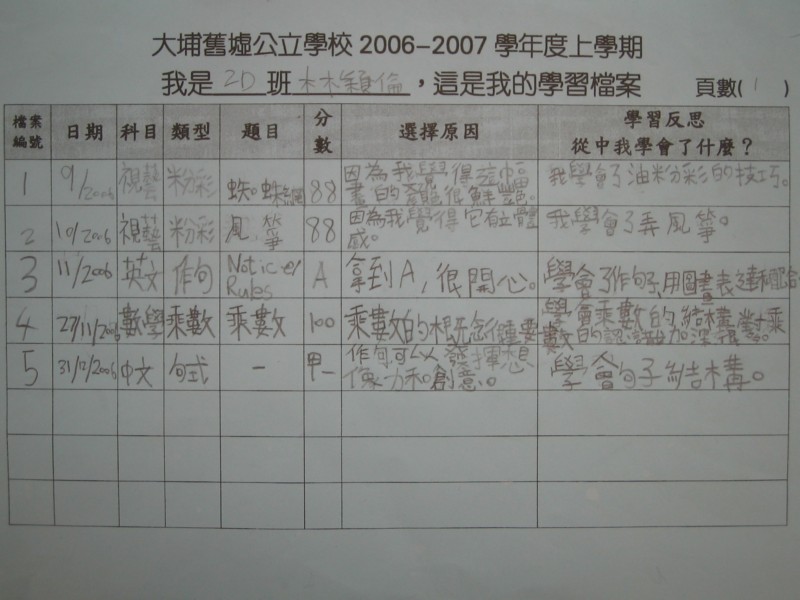 大埔舊墟公立學校 2006-2007 學年度上學期
我是 2D 班 林穎倫 ,這是我的學習檔案 頁數( 1 )
檔案編號 日期 科目 類型 題目 分數 選擇原因 學習反思 從中我學會了什麼？
1 9/2006 視藝 粉彩 蜘蛛 88 因為我覺得這幅畫的 很鮮艷。 我學會了油粉彩的技巧。
2 10/2006 視藝 粉彩 風箏 88 因為我覺得它有立體感。 我學會了弄風箏。
3 11/2006 英文 作句 Notices/ Rules A 拿到A,很開心。 學會了作句子,用圖畫表達和配合
4 27/11/2006 數學 乘數 乘數 100 乘數的概念 重要 學會乘數的結構,對乘數的認識加深
5 31/12/2006 中文 句式 - 甲- 作句可以發揮想像力和創意。 學會句子結構。